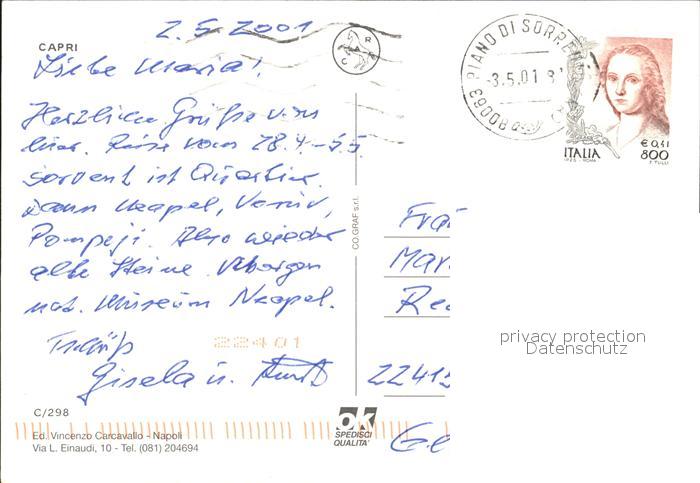 2.5.2001
CAPRI
Liebe Maria!
Herzliche Grüße von
hier. Reise vom 28.4.-5.5.
Sorrent ist Quartier.
Dann Neapel, Vesuv,
Pompeji. Also wieder
alte Steine. Morgen
nat. Museum Neapel.
Tschüß
22401
Gisela u.
C/298
Ed. Vincenzo Carcavallo - Napoli
Via L. Einaudi, 10 - Tel. (081) 204694
CO.GRAF s.r.l.
ok
SPEDISCI
QUALITA'
80063 PIANO DI SORRE
-3.5.01
ITALIA
€ 0,41
800
I.P.Z.S. - ROMA
F. TULLI
Frä
Mar
Re
22415
Ge
privacy protection
Datenschutz